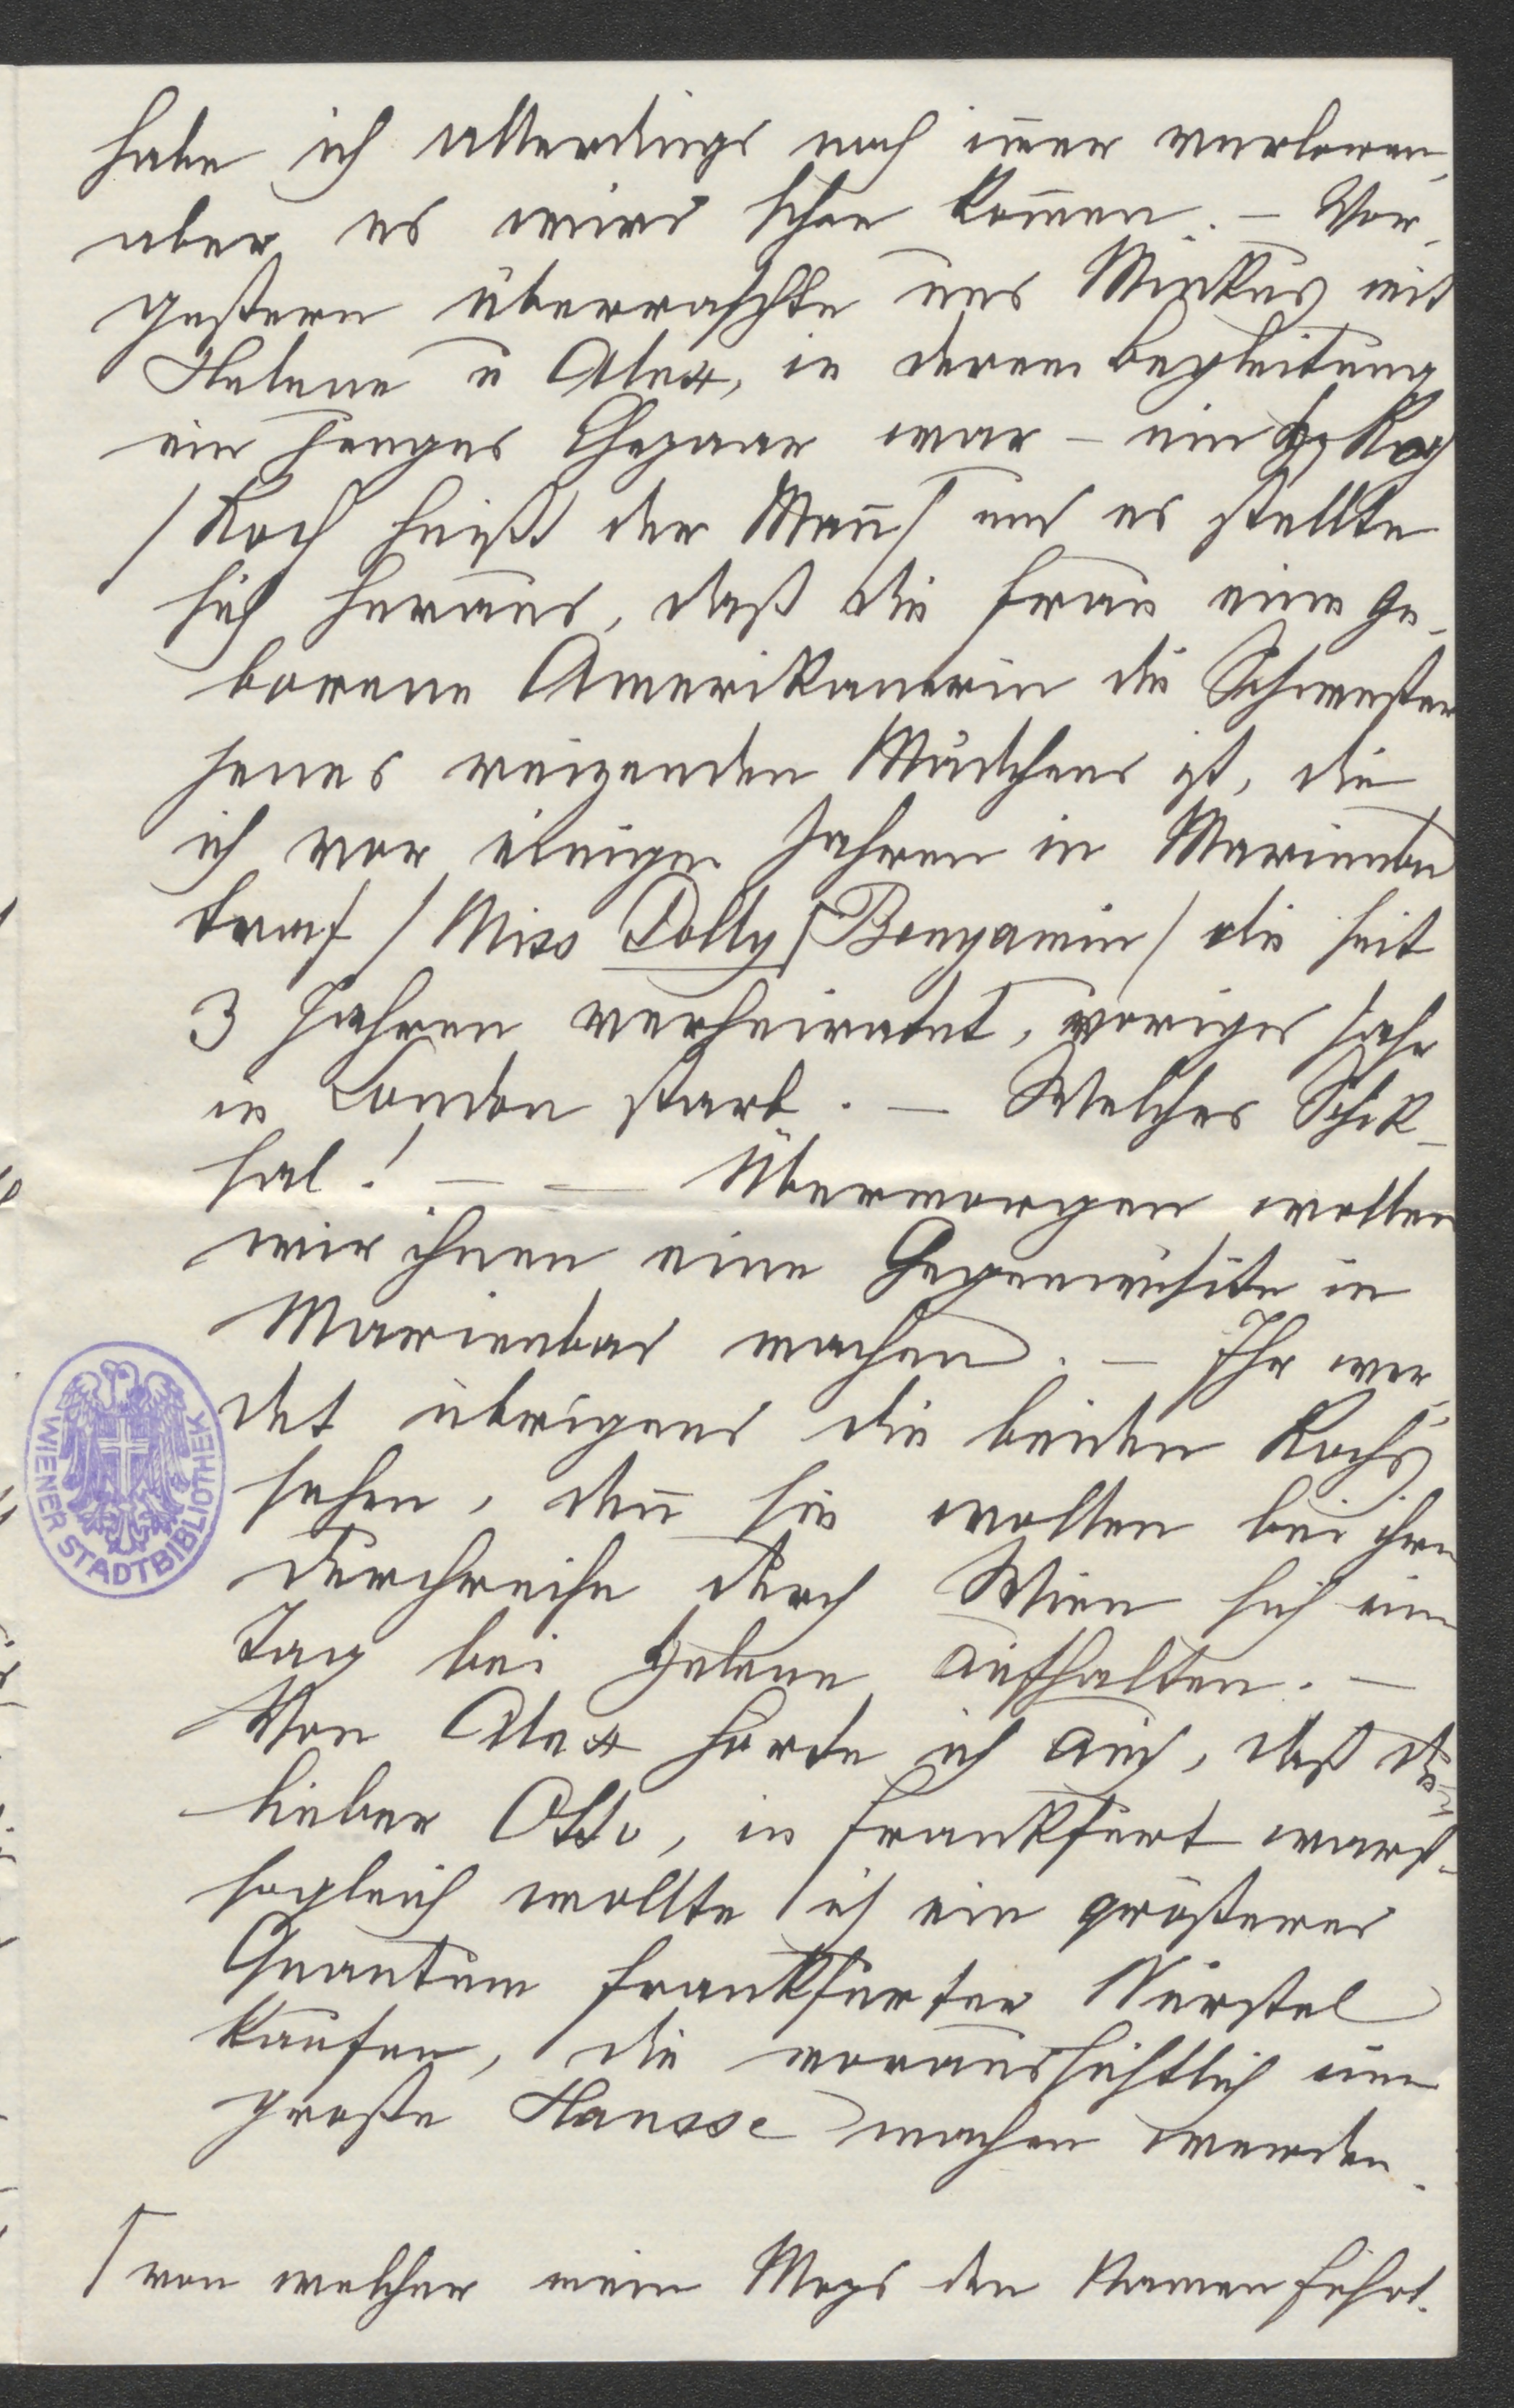 habe ich allerdings noch im̄er verloren,
aber es wird schon kom̄en. – Vor-
gestern überraschte uns Minkus mit
Helene u Alex, in deren Begleitung
ein junges Ehepaar war – ein H. Koch
/ Koch heißt der Man̄ / und es stellte
sich heraus, daß die Frau eine ge-
borene Amerikanerin die Schwester
jenes reizenden Mädchens ist, die
ich vor einigen Jahren in Marienbad
traf / Miss Dolly ⌈ Benyamin / die seit
3 Jahren verheiratet, voriges Jahr
in London starb. – Welches Schik-
sal! – – Übermorgen wollen
wir ihnen eine Gegenvisite in
Marienbad machen. – Ihr wer-
det übrigens die beiden Kochs
sehen, den̄ sie wollen bei ihrer
Durchreise durch Wien sich einen
Tag bei Helene aufhalten. –
Von Alex hörte ich auch, daß du,
lieber Otto, in Frankfurt warst.
sogleich wollte ich ein größeres
Quantum Frankfurter Würstel
kaufen, die voraussichtlich eine
große Hausse machen werden.
⌈ von welcher mein Mops den Namen führt.
WIENER STADTBIBLIOTHEK